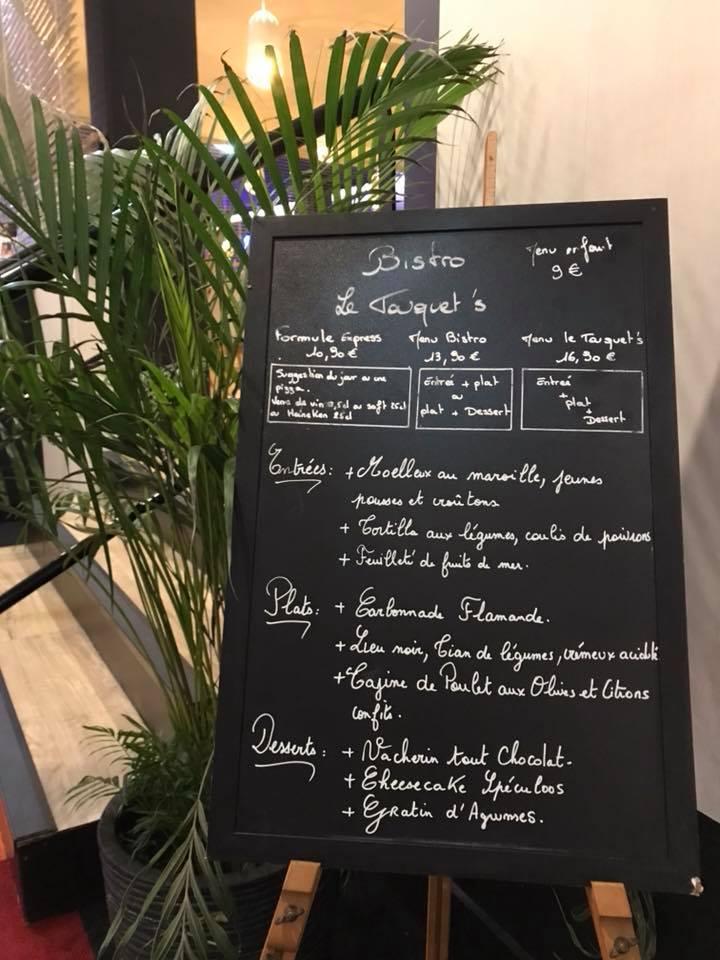 Bistro
Le Taquet's
Menu enfant
9 €
Formule Express
10,90 €
Menu Bistro
13,90 €
Menu le Taquet's
16,90 €
Suggestion du jour ou une
pizza.
Verre de vin 12,5cl ou soft 25cl
ou HeineKen 25cl
Entreé + plat
ou
plat + Dessert
Entreé
+
plat
+
Dessert
Entrées: + Moelleux au maroille, jeunes
pousses et croûtons
+ Tortilla aux légumes, coulis de poivrons
+ Feuilleté de fruits de mer.
Plats: + Carbonnade Flamande.
+ Lieu noir, Tian de légumes, crémeux acidulé
+ Tajine de Poulet aux Olives et Citrons
confits.
Desserts: + Vacherin tout Chocolat.
+ CheesecaKe Spéculoos
+ Gratin d'Agrumes.